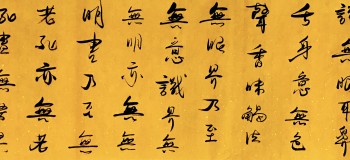 識無眼耳鼻
舌身意無色
聲香味觸法
無眼界乃至
無意識界無
無明亦無無
明盡乃至無
老死亦無老
死盡無